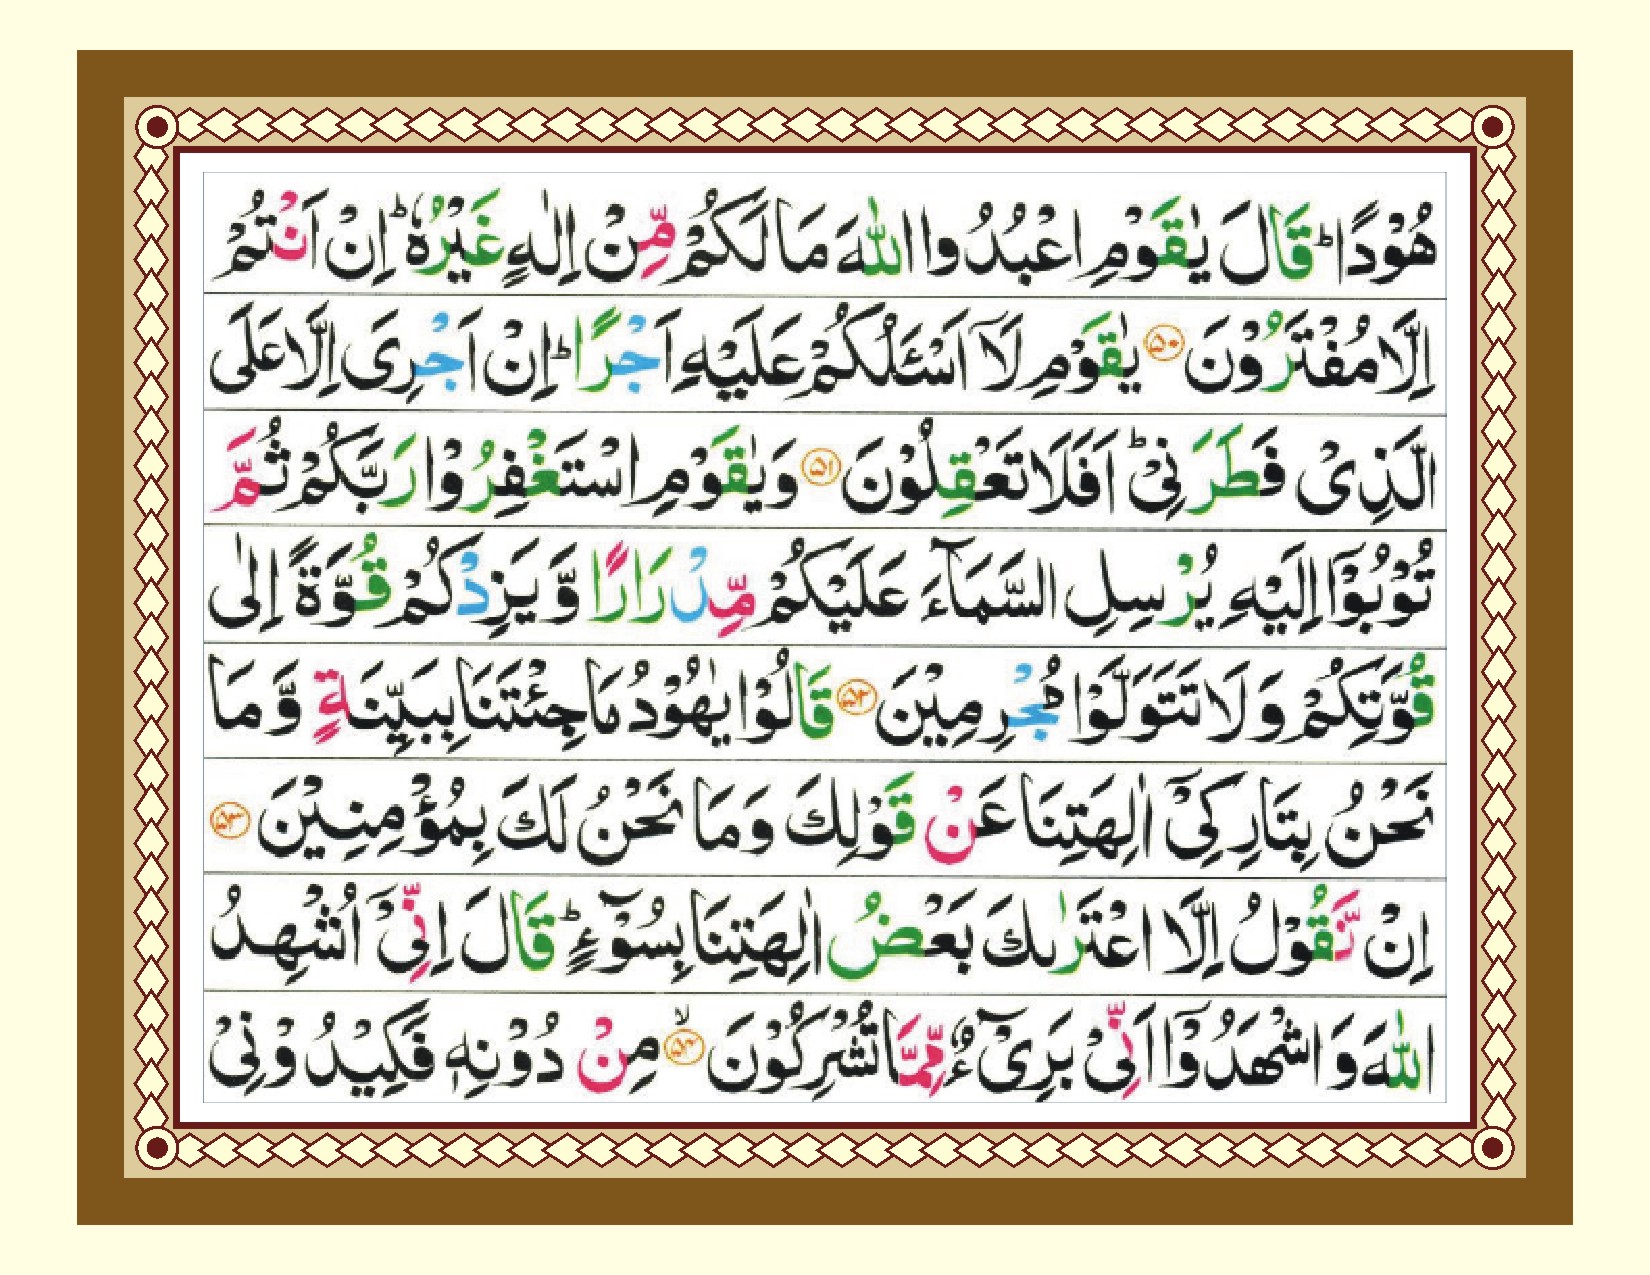 هُوْدًا ؕ قَالَ يٰقَوْمِ اعْبُدُوا اللّٰهَ مَا لَكُمْ مِّنْ اِلٰهٍ غَيْرُهٗ ؕ اِنْ اَنْتُمْ
اِلَّا مُفْتَرُوْنَ ﴿۵۰﴾ يٰقَوْمِ لَاۤ اَسْـَٔلُكُمْ عَلَيْهِ اَجْرًا ؕ اِنْ اَجْرِىَ اِلَّا عَلَى
الَّذِىْ فَطَرَنِىْ ؕ اَفَلَا تَعْقِلُوْنَ ﴿۵۱﴾ وَيٰقَوْمِ اسْتَغْفِرُوْا رَبَّكُمْ ثُمَّ
تُوْبُوْۤا اِلَيْهِ يُرْسِلِ السَّمَآءَ عَلَيْكُمْ مِّدْرَارًا وَّيَزِدْكُمْ قُوَّةً اِلٰى
قُوَّتِكُمْ وَلَا تَتَوَلَّوْا مُجْرِمِيْنَ ﴿۵۲﴾ قَالُوْا يٰهُوْدُ مَا جِئْتَنَا بِبَيِّنَةٍ وَّمَا
نَحْنُ بِتَارِكِىْۤ اٰلِهَتِنَا عَنْ قَوْلِكَ وَمَا نَحْنُ لَكَ بِمُؤْمِنِيْنَ ﴿۵۳﴾
اِنْ نَّقُوْلُ اِلَّا اعْتَرٰىكَ بَعْضُ اٰلِهَتِنَا بِسُوْٓءٍ ؕ قَالَ اِنِّىْۤ اُشْهِدُ
اللّٰهَ وَاشْهَدُوْۤا اَنِّىْ بَرِىْٓءٌ مِّمَّا تُشْرِكُوْنَ ۙ﴿۵۴﴾ مِنْ دُوْنِهٖ فَكِيْدُوْنِىْ